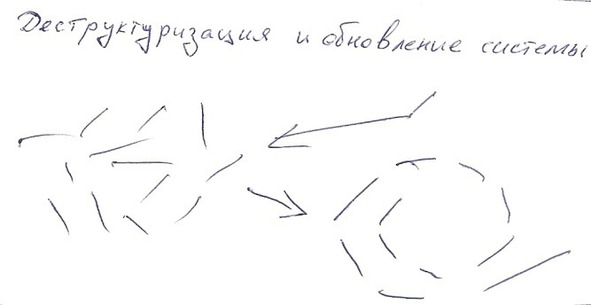 Деструктуризация и обновление системы